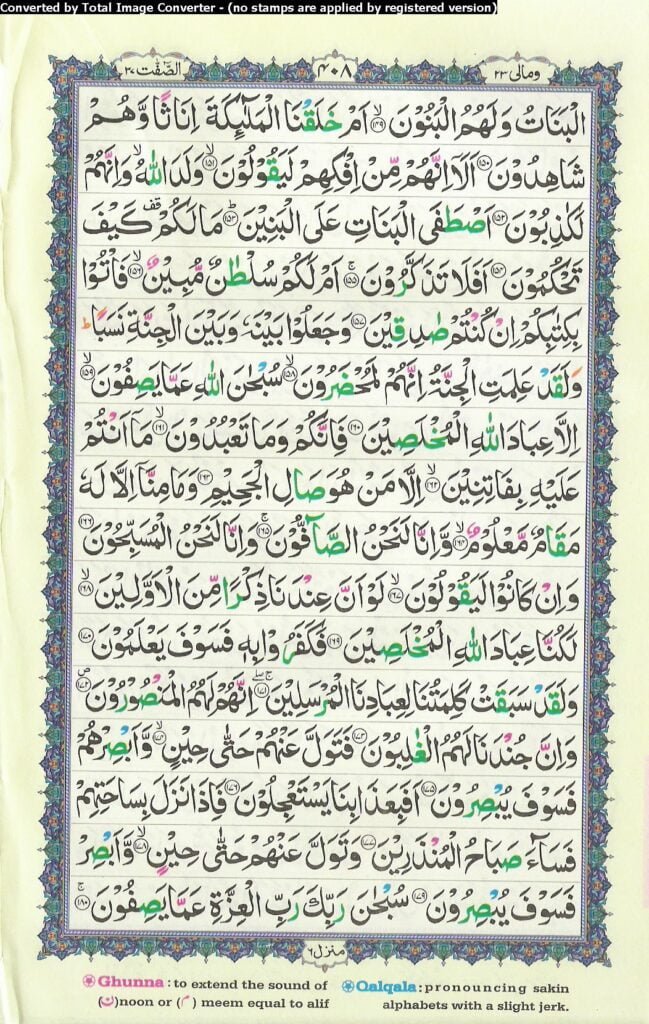 Converted by Total Image Converter - (no stamps are applied by registered version)
ومالی ٢٣
٤٠٨
الصّٰفّٰت ٣٧
الْبَنَاتُ وَلَهُمُ الْبَنُوْنَ ۙ﴿١٤٩﴾ اَمْ خَلَقْنَا الْمَلٰٓئِكَةَ اِنَاثًا وَّهُمْ
شَاهِدُوْنَ ﴿١٥٠﴾ اَلَاۤ اِنَّهُمْ مِّنْ اِفْكِهِمْ لَيَقُوْلُوْنَ ۙ﴿١٥١﴾ وَلَدَ اللّٰهُ ۙ وَاِنَّهُمْ
لَكٰذِبُوْنَ ﴿١٥٢﴾ اَصْطَفَى الْبَنَاتِ عَلَى الْبَنِيْنَ ؕ﴿١٥٣﴾ مَا لَكُمْ قف كَيْفَ
تَحْكُمُوْنَ ﴿١٥٤﴾ اَفَلَا تَذَكَّرُوْنَ ۚ﴿١٥٥﴾ اَمْ لَكُمْ سُلْطٰنٌ مُّبِيْنٌ ۙ﴿١٥٦﴾ فَاْتُوْا
بِكِتٰبِكُمْ اِنْ كُنْتُمْ صٰدِقِيْنَ ﴿١٥٧﴾ وَجَعَلُوْا بَيْنَهٗ وَبَيْنَ الْجِنَّةِ نَسَبًا ؕ
وَلَقَدْ عَلِمَتِ الْجِنَّةُ اِنَّهُمْ لَمُحْضَرُوْنَ ۙ﴿١٥٨﴾ سُبْحٰنَ اللّٰهِ عَمَّا يَصِفُوْنَ ۙ﴿١٥٩﴾
اِلَّا عِبَادَ اللّٰهِ الْمُخْلَصِيْنَ ﴿١٦٠﴾ فَاِنَّكُمْ وَمَا تَعْبُدُوْنَ ۙ﴿١٦١﴾ مَاۤ اَنْتُمْ
عَلَيْهِ بِفَاتِنِيْنَ ۙ﴿١٦٢﴾ اِلَّا مَنْ هُوَ صَالِ الْجَحِيْمِ ﴿١٦٣﴾ وَمَا مِنَّاۤ اِلَّا لَهٗ
مَقَامٌ مَّعْلُوْمٌ ۙ﴿١٦٤﴾ وَّاِنَّا لَنَحْنُ الصَّآفُّوْنَ ۚ﴿١٦٥﴾ وَاِنَّا لَنَحْنُ الْمُسَبِّحُوْنَ ﴿١٦٦﴾
وَاِنْ كَانُوْا لَيَقُوْلُوْنَ ۙ﴿١٦٧﴾ لَوْ اَنَّ عِنْدَنَا ذِكْرًا مِّنَ الْاَوَّلِيْنَ ۙ﴿١٦٨﴾
لَكُنَّا عِبَادَ اللّٰهِ الْمُخْلَصِيْنَ ﴿١٦٩﴾ فَكَفَرُوْا بِهٖ فَسَوْفَ يَعْلَمُوْنَ ﴿١٧٠﴾
وَلَقَدْ سَبَقَتْ كَلِمَتُنَا لِعِبَادِنَا الْمُرْسَلِيْنَ ۚۖ﴿١٧١﴾ اِنَّهُمْ لَهُمُ الْمَنْصُوْرُوْنَ ص﴿١٧٢﴾
وَاِنَّ جُنْدَنَا لَهُمُ الْغٰلِبُوْنَ ﴿١٧٣﴾ فَتَوَلَّ عَنْهُمْ حَتّٰى حِيْنٍ ۙ﴿١٧٤﴾ وَّاَبْصِرْهُمْ
فَسَوْفَ يُبْصِرُوْنَ ﴿١٧٥﴾ اَفَبِعَذَابِنَا يَسْتَعْجِلُوْنَ ﴿١٧٦﴾ فَاِذَا نَزَلَ بِسَاحَتِهِمْ
فَسَآءَ صَبَاحُ الْمُنْذَرِيْنَ ﴿١٧٧﴾ وَتَوَلَّ عَنْهُمْ حَتّٰى حِيْنٍ ۙ﴿١٧٨﴾ وَّاَبْصِرْ
فَسَوْفَ يُبْصِرُوْنَ ﴿١٧٩﴾ سُبْحٰنَ رَبِّكَ رَبِّ الْعِزَّةِ عَمَّا يَصِفُوْنَ ۚ﴿١٨٠﴾
منزل ٦
Ghunna : to extend the sound of
(ن)noon or (م) meem equal to alif
Qalqala: pronouncing sakin
alphabets with a slight jerk.